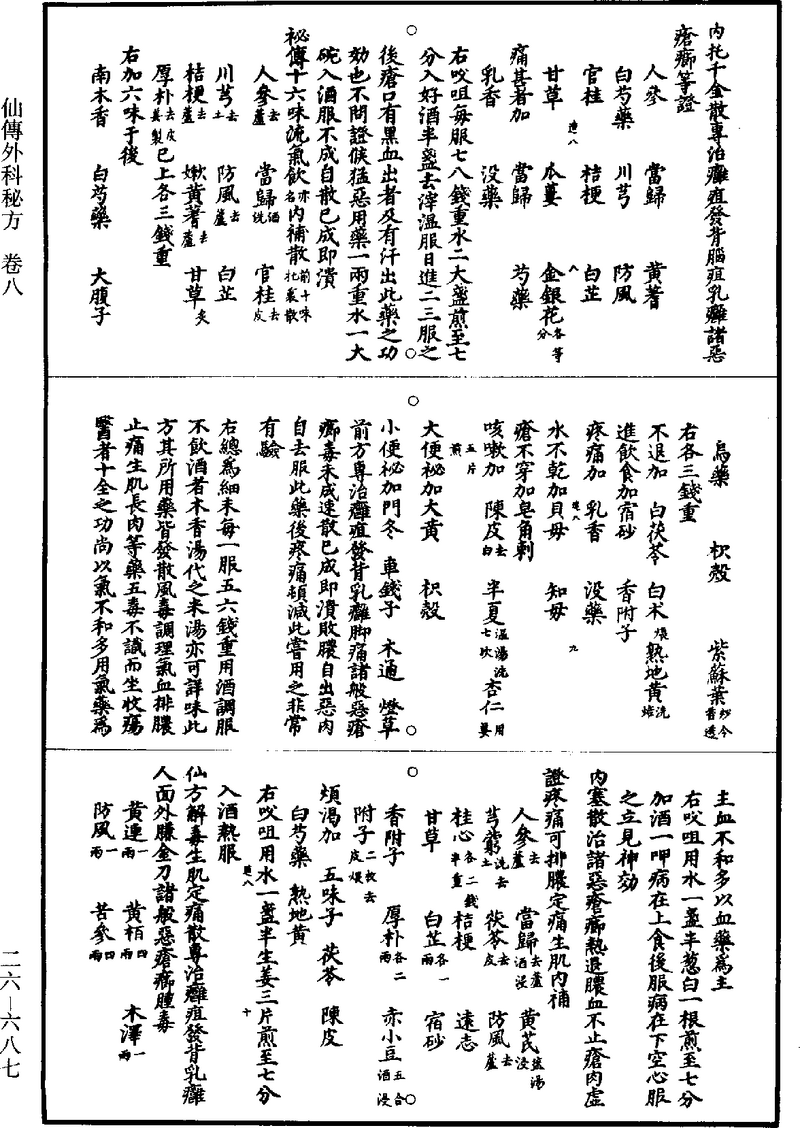 內托千金散專治癰疽發背腦疽乳癰諸惡
瘡癤等證
人參 當歸 黃耆
白芍藥 川芎 防風
官桂 桔梗 白芷
甘草 瓜蔞 金銀花各等分
痛甚者加 當歸 芍藥
乳香 沒藥
右㕮咀每服七八錢重水二大盞煎至七
分入好酒半盞去滓溫服日進二三服之
後瘡口有黑血出者及有汗出此藥之功
効也不問證候猛惡用藥一兩重水一大
碗入酒服不成自散已成即潰
祕傳十六味流氣飲亦名內補散前十味托裏散
人參去蘆 當歸酒洗 官桂去皮
川芎去土 防風去蘆 白芷
桔梗去蘆 嫩黃耆去蘆 甘草炙
厚朴去皮姜製 已上各三錢重
右加六味于後
南木香 白芍藥 大腹子
烏藥 枳殼 紫蘇葉
右各三錢重
不退加 白茯苓 白朮煨 熟地黃洗焙
進飲食加宿砂 香附子
疼痛加 乳香 沒藥
水不乾加貝母 知母
瘡不穿加皂角刺
咳嗽加 陳皮去白 半夏溫湯洗七次 杏仁用姜五片煎
大便祕加大黃 枳殼
小便祕加門冬 車錢子 木通 燈草
前方專治癰疽發背乳癰脚痛諸般惡瘡
癤毒未成速散已成即潰敗膿自出惡肉
自去服此藥後疼痛頓減此嘗用之非常
有驗
右總爲細末每一服五六錢重用酒調服
不飲酒者木香湯代之米湯亦可詳味此
方其所用藥皆發散風毒調理氣血排膿
止痛生肌長肉等藥五毒不識而坐收瘍
醫者十全之功尚以氣不和多用氣藥爲
主血不和多以血藥爲主
右㕮咀用水一盞半葱白一根煎至七分
加酒一呷病在上食後服病在下空心服
之立見神効
內塞散治諸惡瘡癤熱退膿血不止瘡肉虛
證疼痛可排膿定痛生肌內補
人參去蘆 當歸去蘆酒浸 黃芪鹽湯浸
芎藭洗去土 茯苓去皮 防風去蘆
桂心各二錢半重 桔梗 遠志
甘草 白芷各一兩 宿砂
香附子 厚朴各二兩 赤小豆五合酒浸
附子二枚去皮煨
煩渴加 五味子 茯苓 陳皮
白芍藥 熟地黃
右㕮咀用水一盞半生姜三片煎至七分
入酒熱服
仙方解毒生肌定痛散專治癰疽發背乳癰
人面外臁金刀諸般惡瘡癤腫毒
黃連一兩 黃栢四兩 木澤一兩
防風一兩 苦參四兩
仙傳外科秘方 卷八
二六—六八七